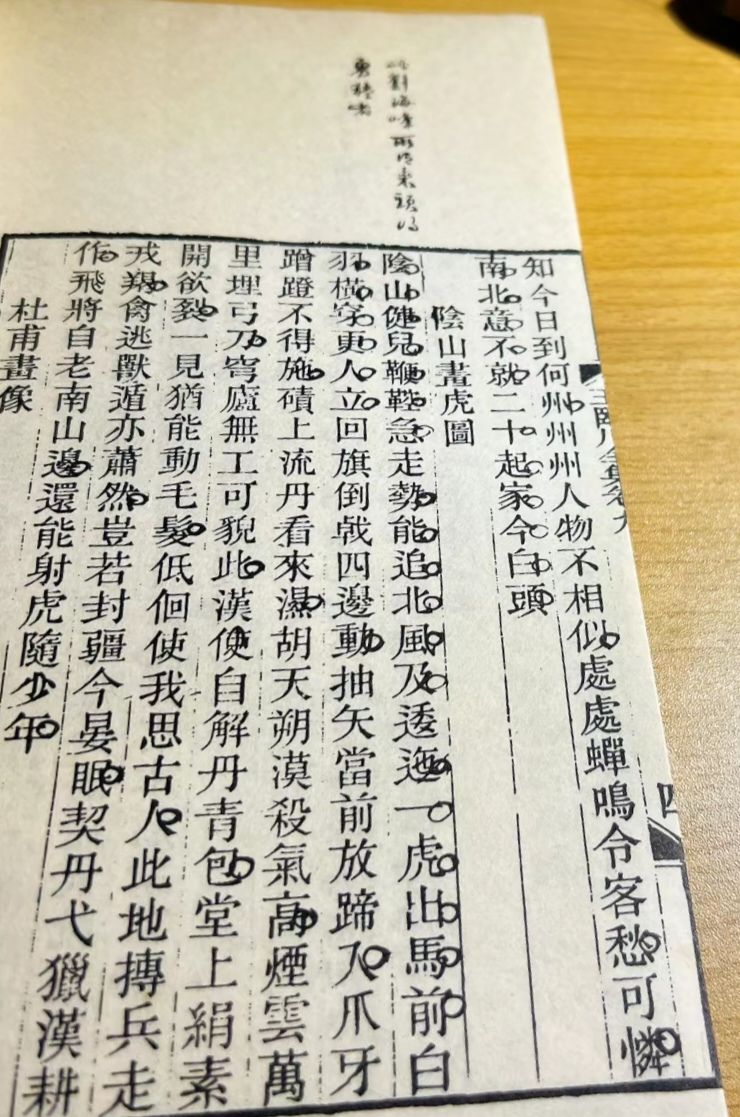 王臨川全集卷九
四
知今日到何州州州人物不相似處處蟬鳴令客愁可憐
南北意不就二十起家今白頭
陰山畫虎圖
陰山健兒鞭鞚急走勢能追北風及逶迤一虎出馬前白
羽橫穿更人立回旗倒戟四邊動抽矢當前放蹄入爪牙
蹭蹬不得施磧上流丹看來濕胡天朔漠殺氣高煙雲萬
里埋弓刀穹廬無工可貌此漢使自解丹青包堂上絹素
開欲裂一見猶能動毛髮低佪使我思古人此地摶兵走
戎羯禽逃獸遁亦蕭然豈若封疆今晏眠契丹弋獵漢耕
作飛將自老南山邊還能射虎隨少年
杜甫畫像